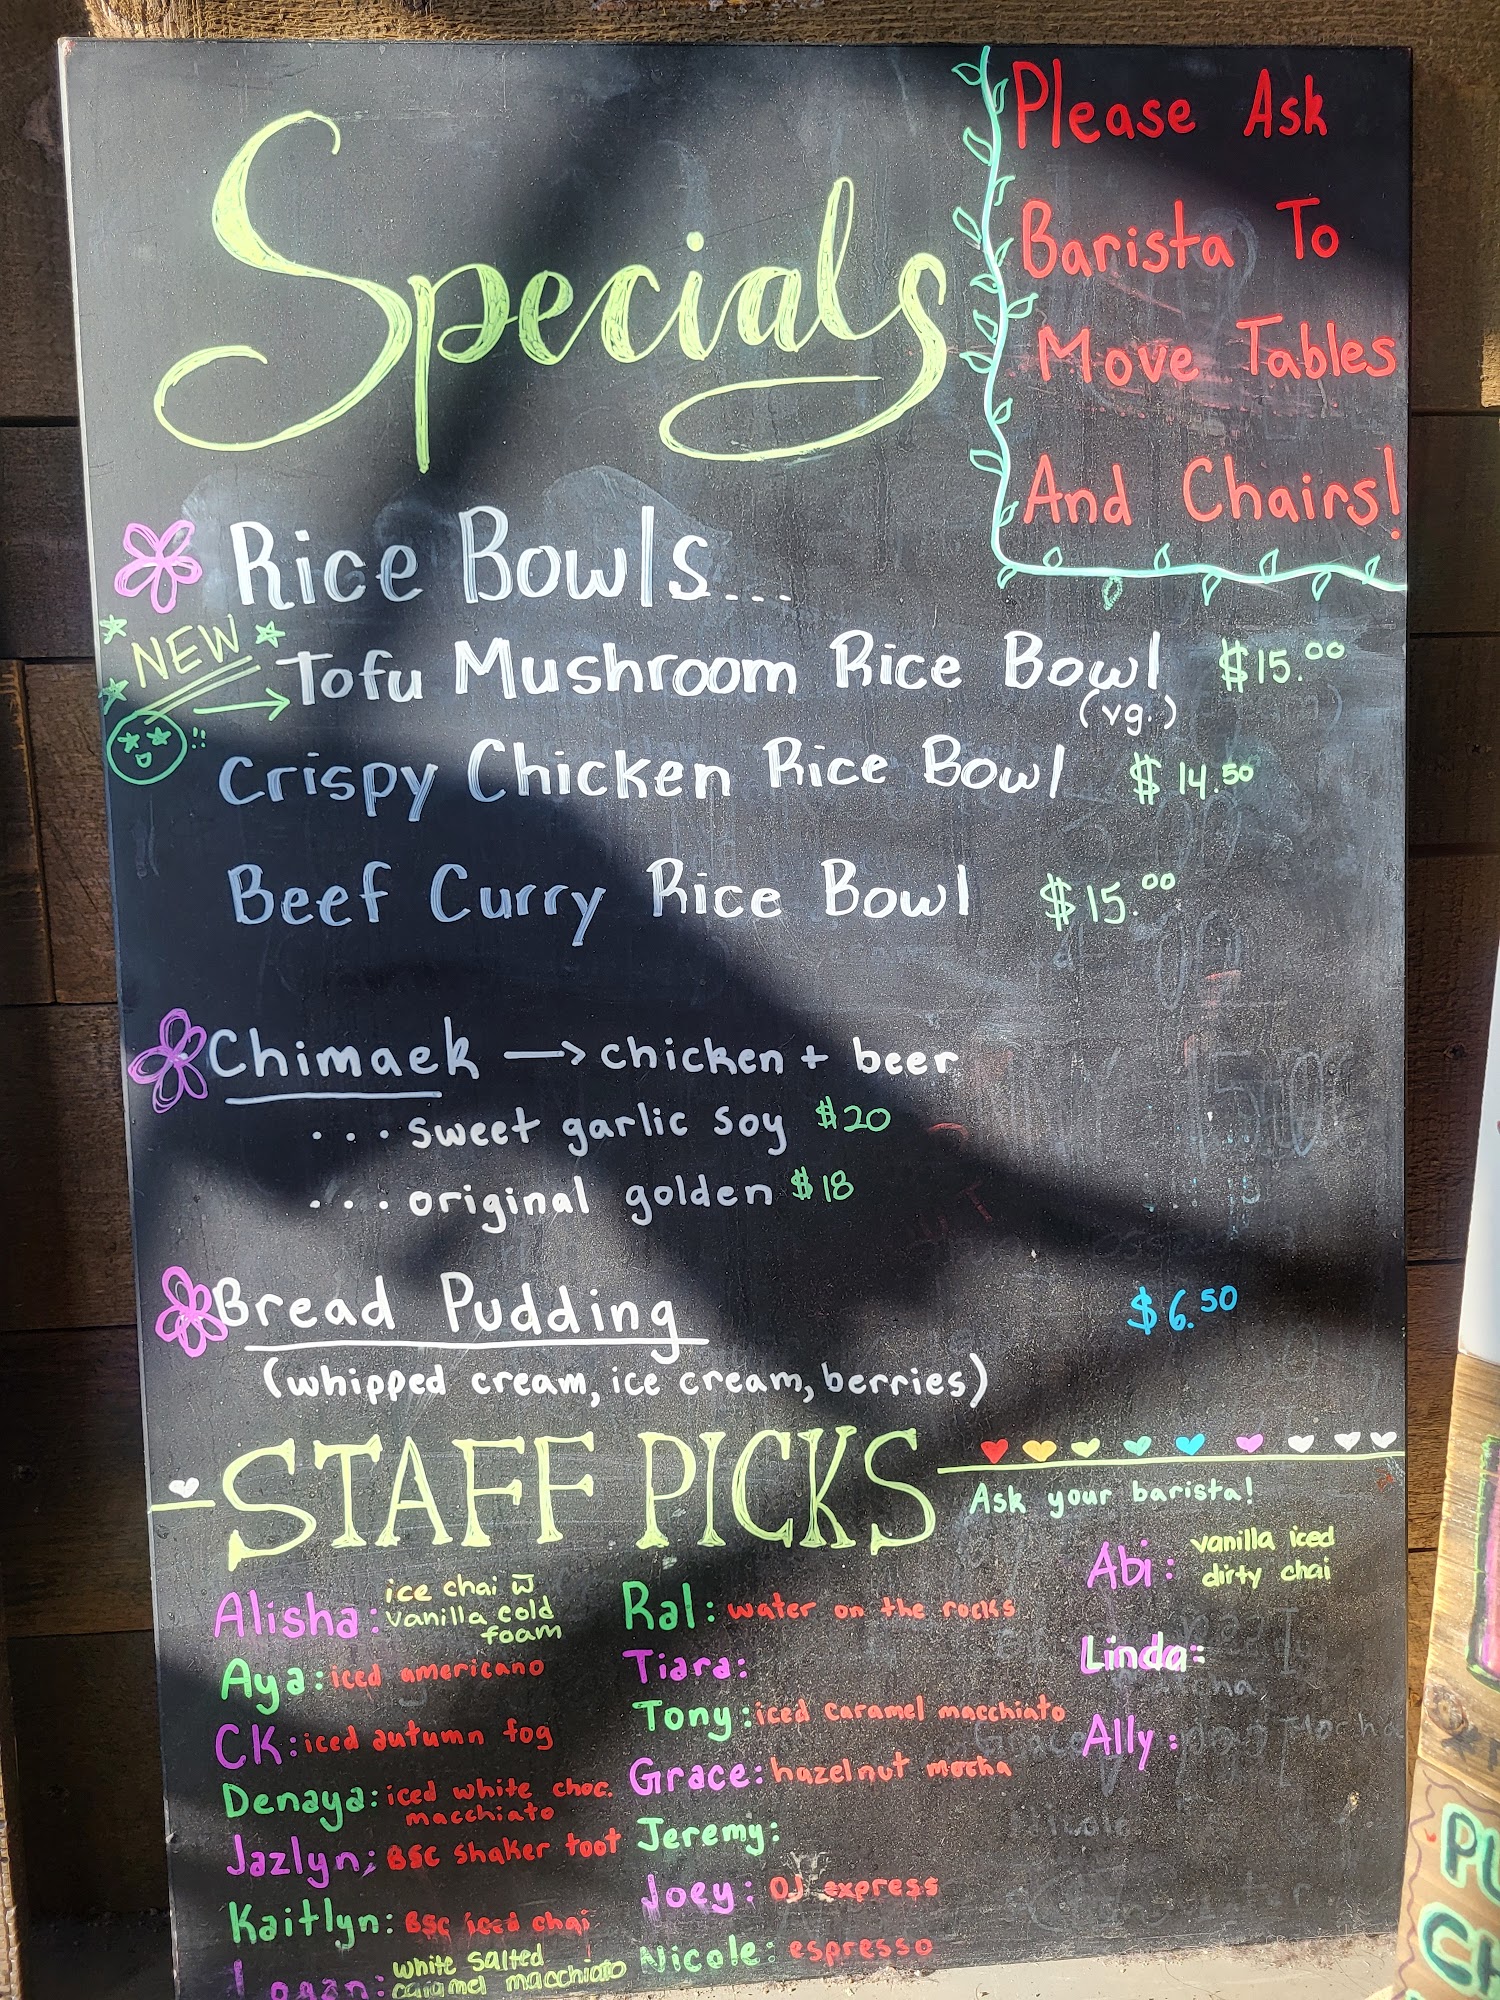 Specials
Please Ask
Barista To
Move Tables
And Chairs!
Rice Bowls...
NEW
Tofu Mushroom Rice Bowl $15.00
(vg.)
Crispy Chicken Rice Bowl $14.50
Beef Curry Rice Bowl $15.00
Chimaek → chicken + beer
... sweet garlic soy $20
... original golden $18
Bread Pudding $6.50
(whipped cream, ice cream, berries)
STAFF PICKS
Ask your barista!
Alisha: ice chai w̅
vanilla cold
foam
Aya: iced americano
CK: iced autumn fog
Denaya: iced white choc.
macchiato
Jazlyn: BSC shaker toot
Kaitlyn: BSC iced chai
Logan: white salted
caramel macchiato
Ral: water on the rocks
Tiara:
Tony: iced caramel macchiato
Grace: hazelnut mocha
Jeremy:
Joey: OJ express
Nicole: espresso
Abi: vanilla iced
dirty chai
Linda:
Ally: